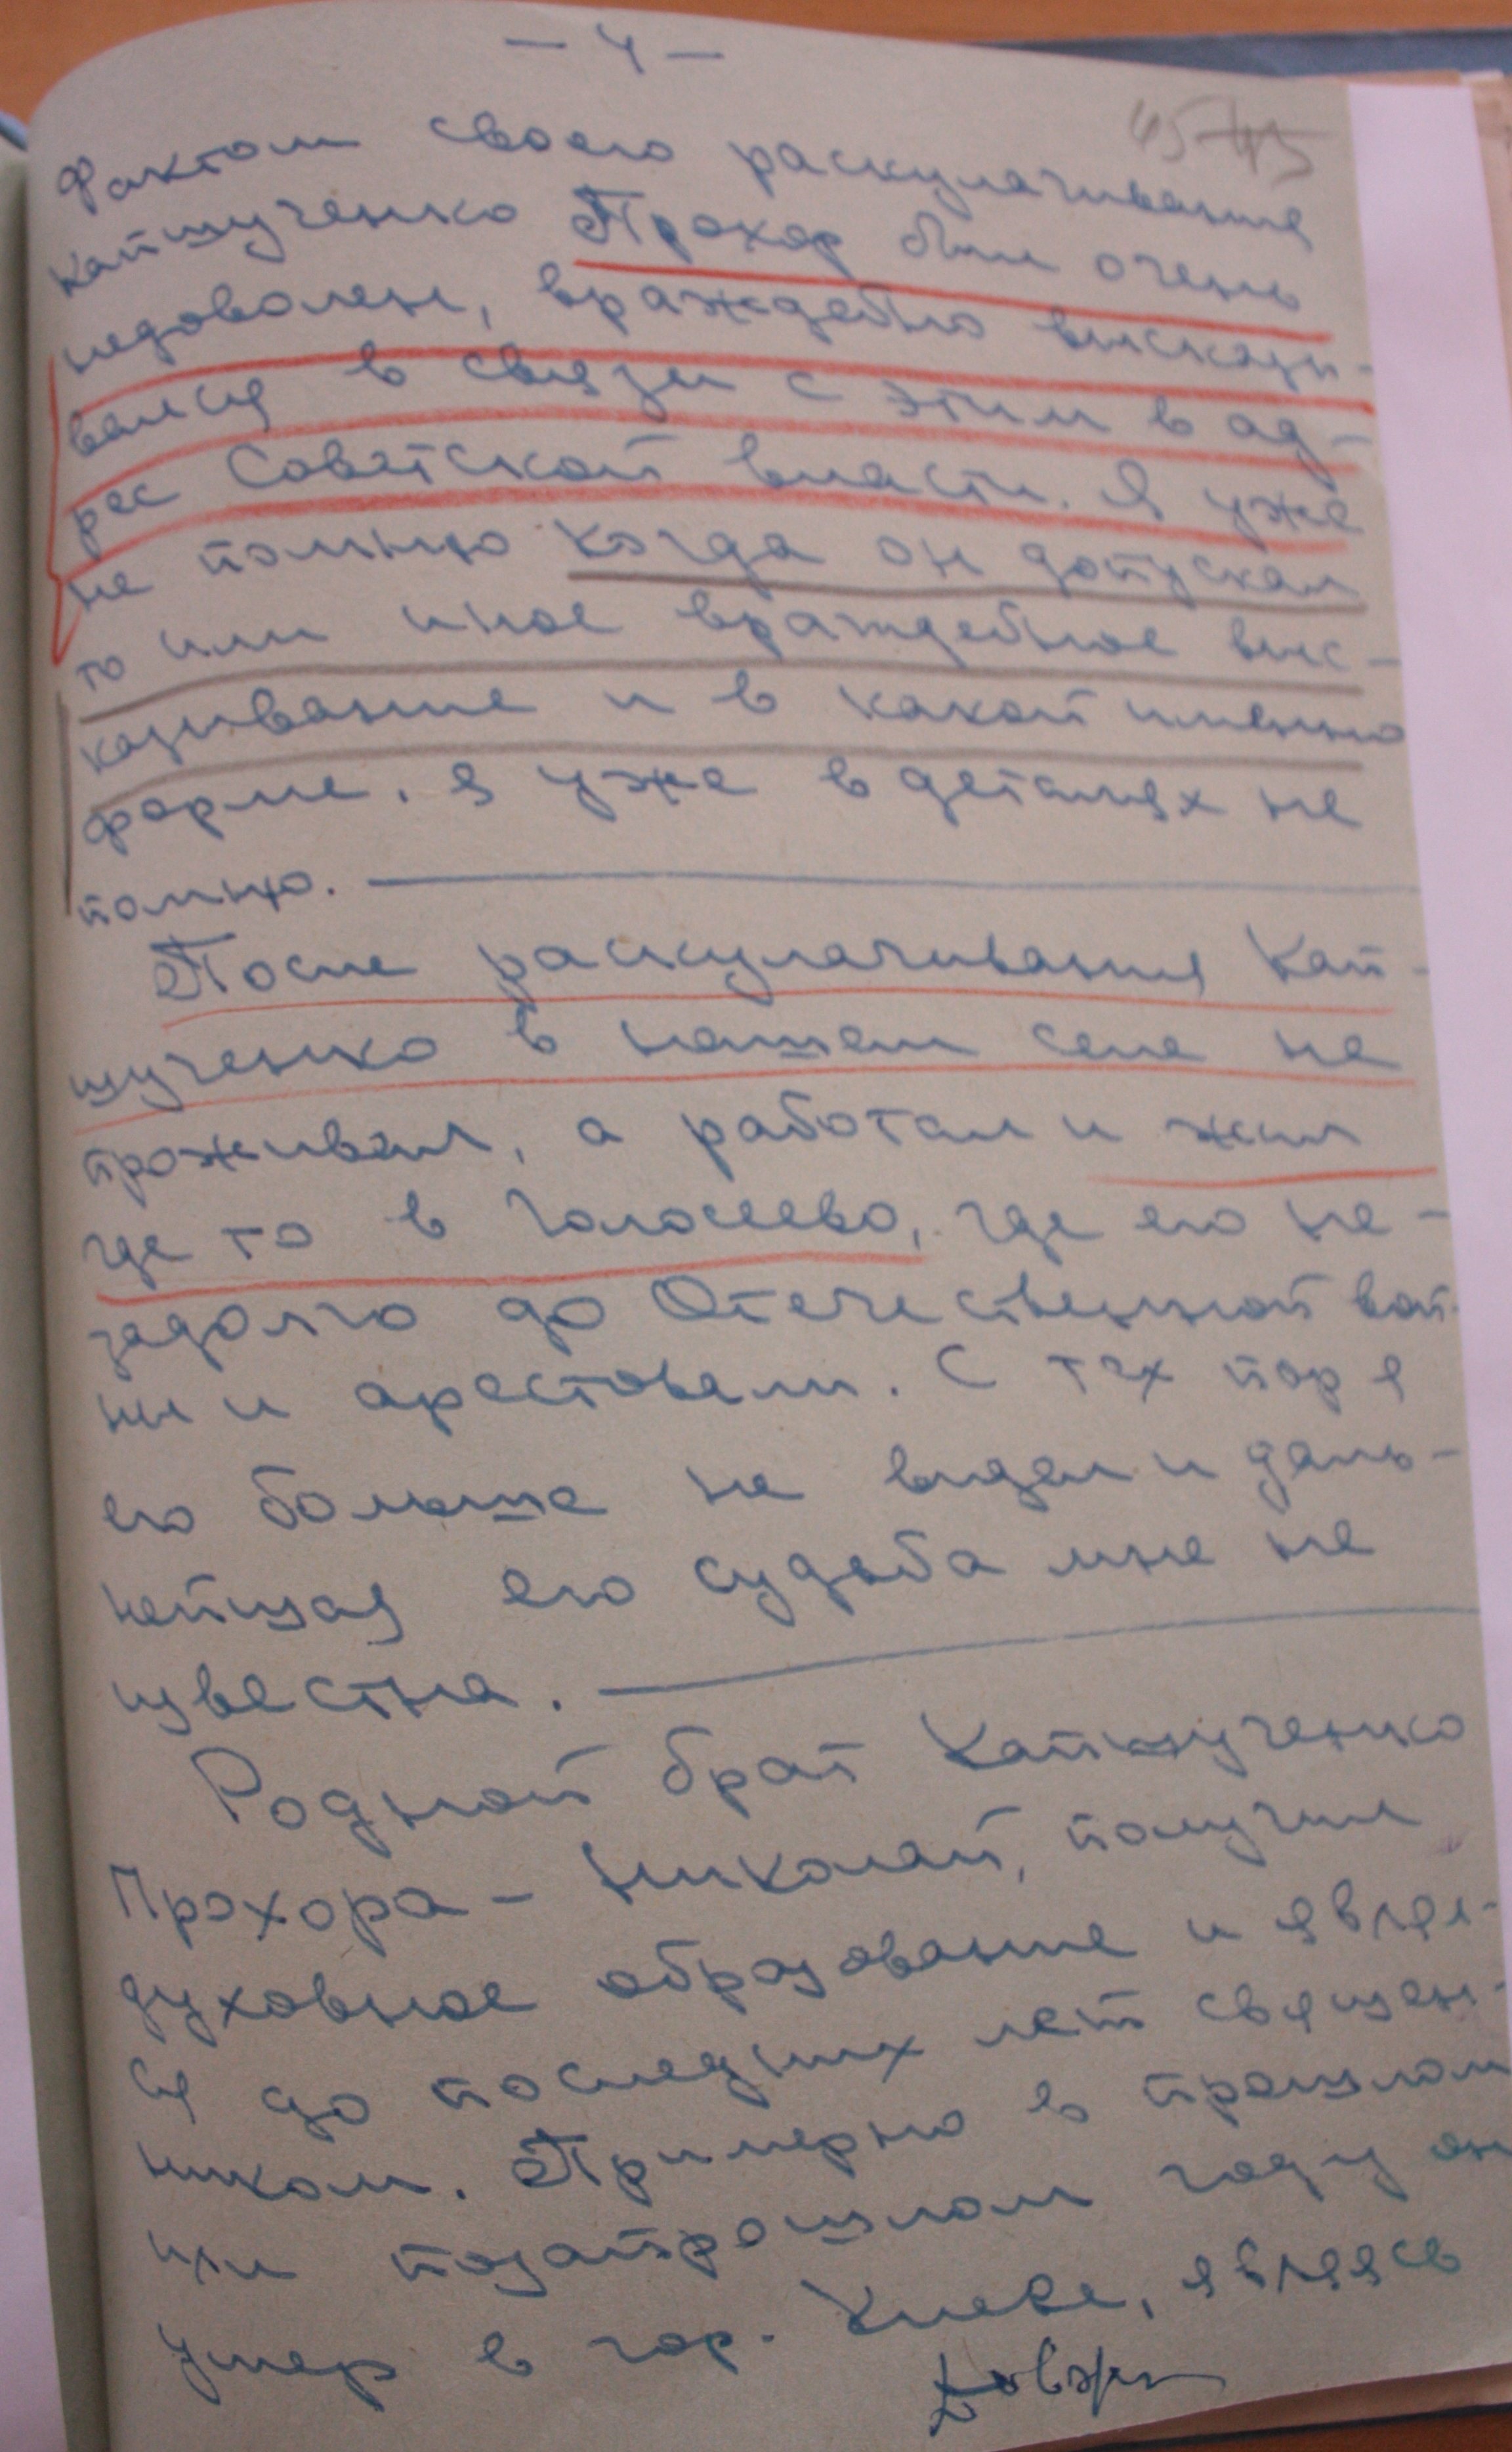 — 4 —
45 45
Фактом своего раскулачивания
Капшученко Прохор был очень
недоволен, враждебно высказы-
вался в связи с этим в ад-
рес Советской власти. Я уже
не помню когда он допускал
то или иное враждебное выс-
казывание и в какой именно
форме. я уже в деталях не
помню.
После раскулачивания Кап-
шученко в нашем селе не
проживал, а работал и жил
где то в Голосеево, где его не-
задолго до Отечественной вой-
ны и арестовали. С тех пор я
его больше не видел и даль-
нейшая его судьба мне не
известна.
Родной брат Капшученко
Прохора – Николай, получил
духовное образование и являл-
ся до последних лет священ-
ником. Примерно в прошлом
или позапрошлом году он
умер в гор. Киеве, являясь